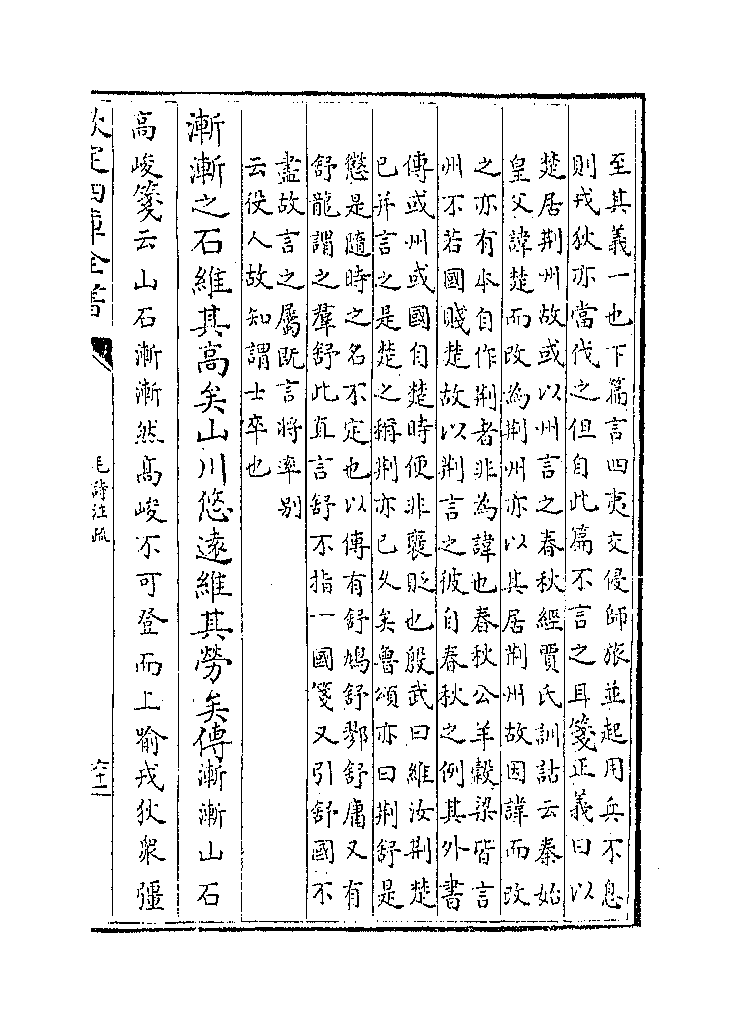 至其義一也下篇言四夷交侵師旅並起用兵不息
則戎狄亦當伐之但自此篇不言之耳箋正義曰以
楚居荆州故或以州言之春秋經賈氏訓詁云秦始
皇父諱楚而改為荆州亦以其居荆州故因諱而改
之亦有本自作荆者非為諱也春秋公羊榖梁皆言
州不若國賤楚故以荆言之彼自春秋之例其外書
傳或州或國自楚時便非襃貶也殷武曰維汝荆楚
已并言之是楚之稱荆亦已久矣魯頌亦曰荆舒是
懲是隨時之名不定也以傳有舒鳩舒鄝舒庸又有
舒龍謂之羣舒此直言舒不指一國箋又引舒國不
盡故言之屬既言將率别
云役人故知謂士卒也
漸漸之石維其高矣山川悠遠維其勞矣傳漸漸山石
高峻箋云山石漸漸然高峻不可登而上喻戎狄衆彊
欽定四庫全書
毛詩注疏
六十二